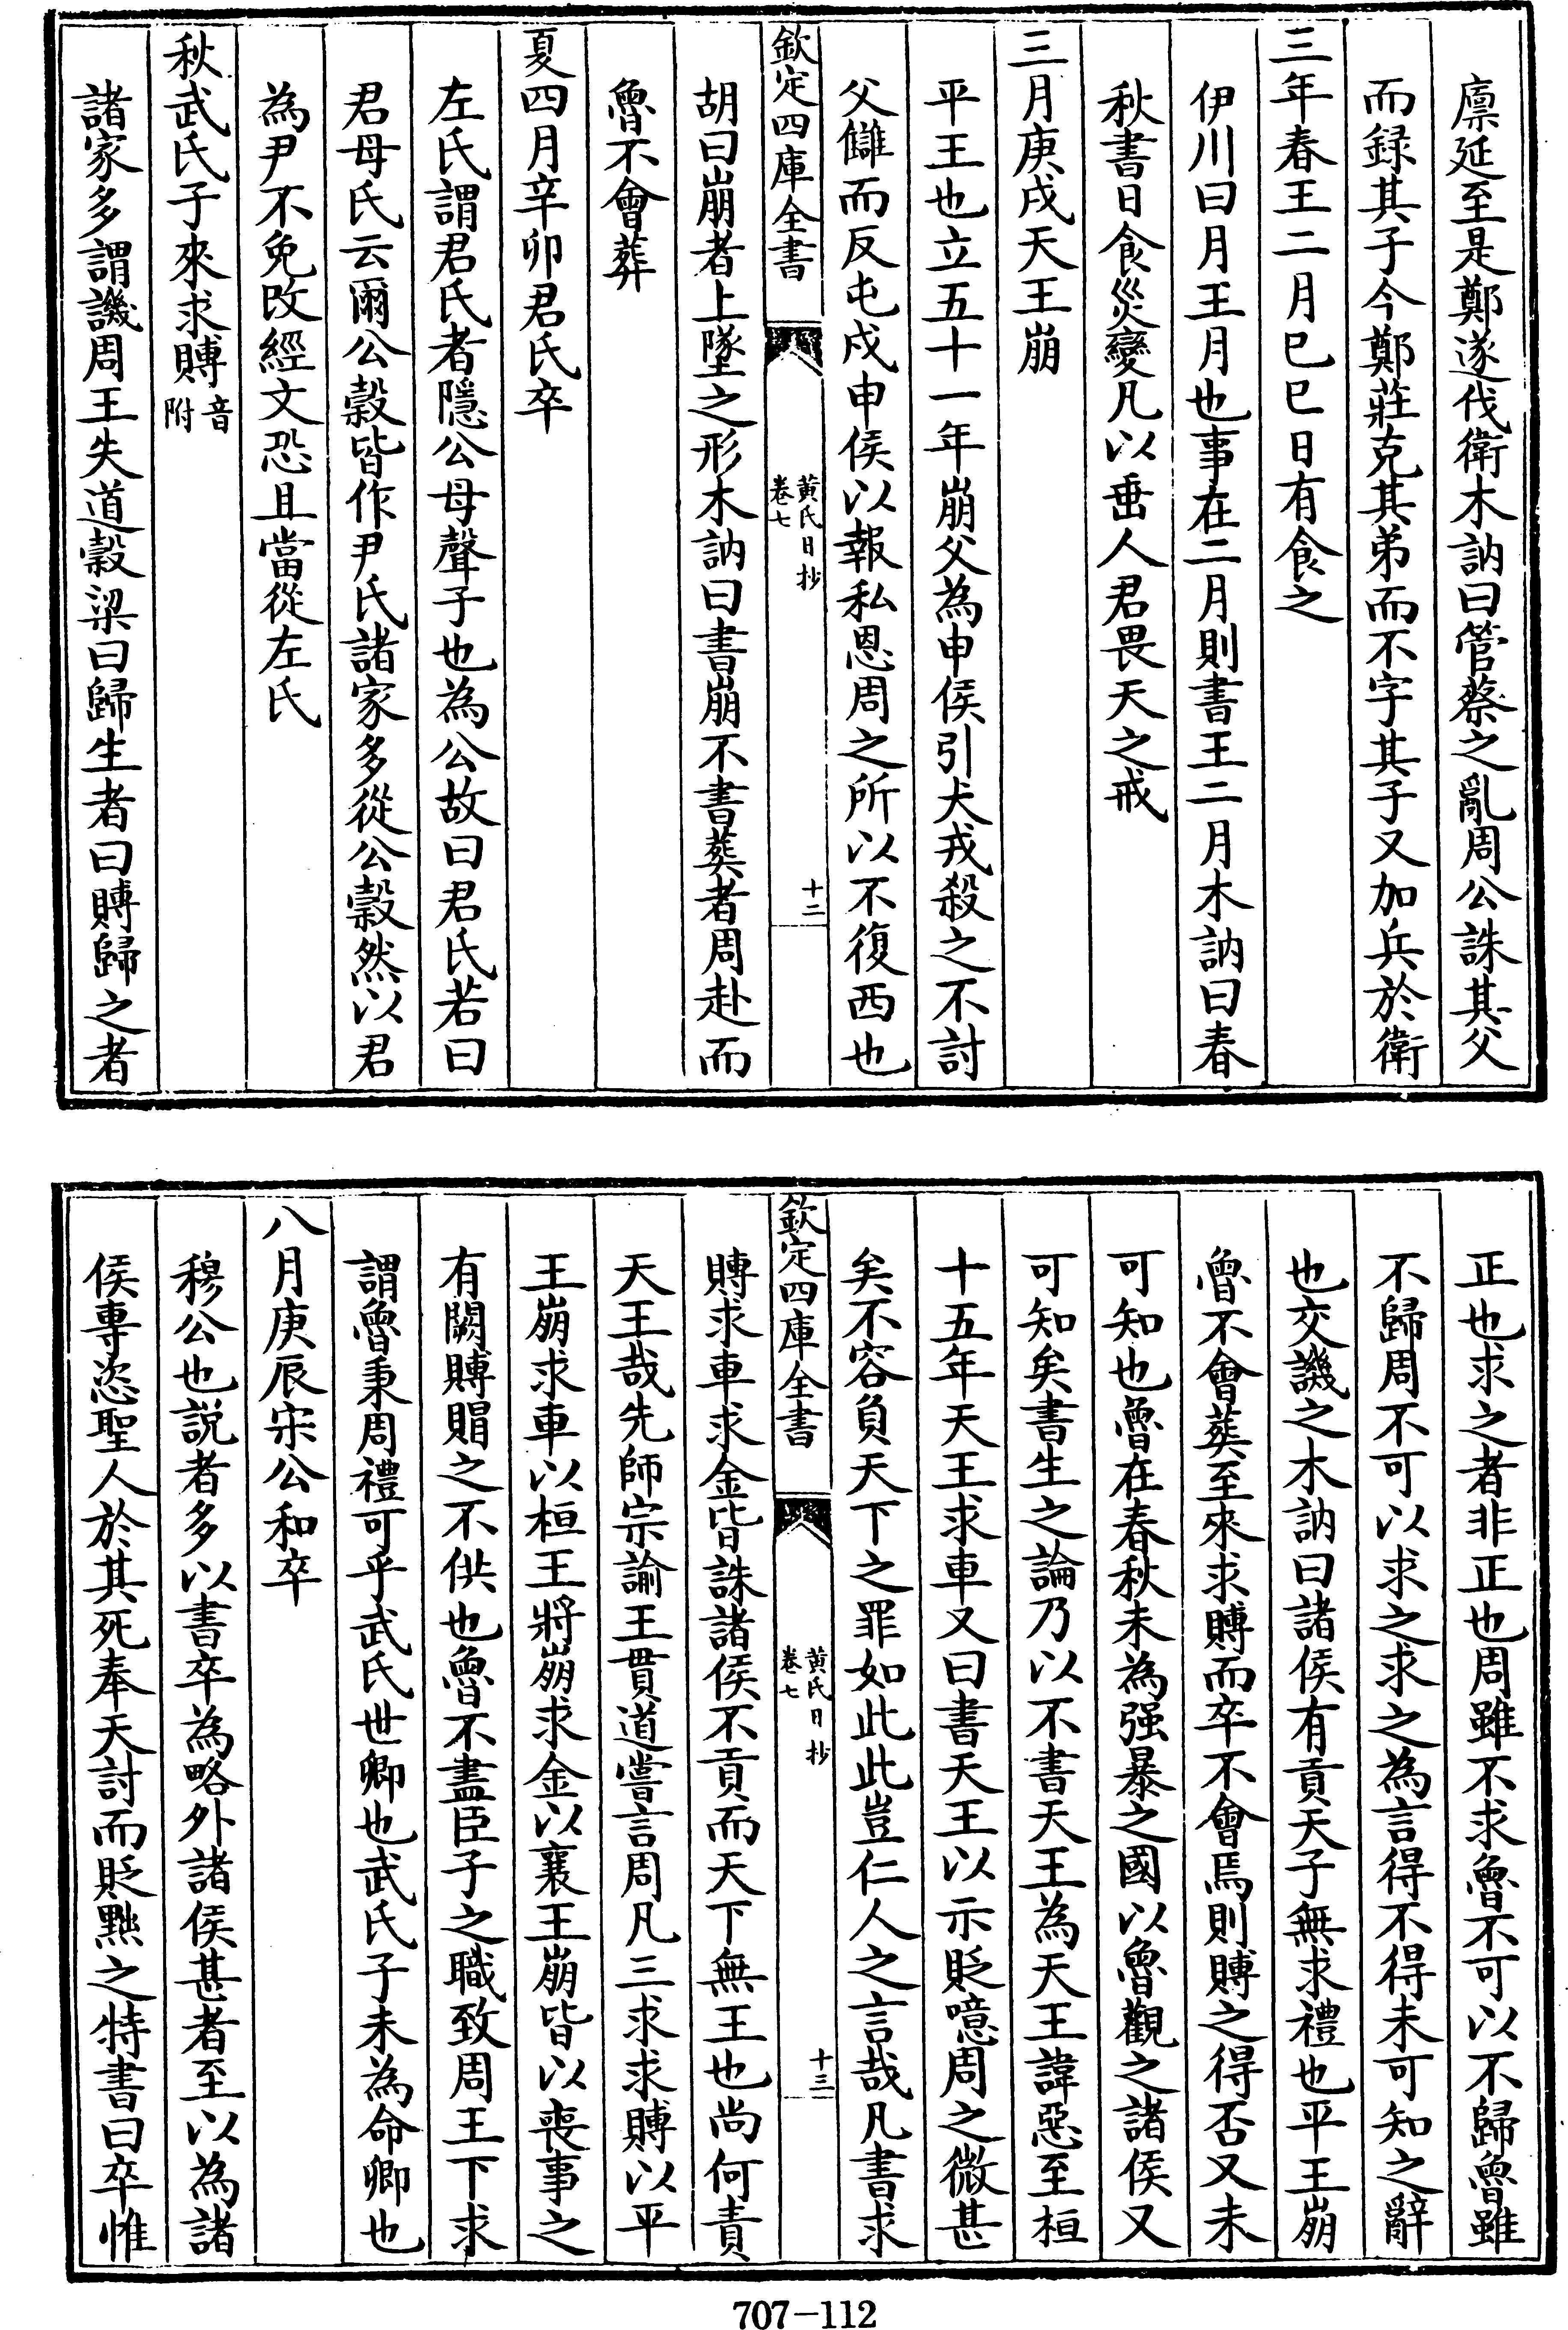 廪延至是鄭遂伐衛木訥曰管蔡之亂周公誅其父
而録其子今鄭莊克其弟而不字其子又加兵於衛
三年春王二月巳巳日有食之
伊川曰月王月也事在二月則書王二月木訥曰春
秋書日食災變凡以垂人君畏天之戒
三月庚戌天王崩
平王也立五十一年崩父為申侯引犬戎殺之不討
父讎而反屯戍申侯以報私恩周之所以不復西也
欽定四庫全書
黄氏日抄
卷七
十二
胡曰崩者上墜之形木訥曰書崩不書葬者周赴而
魯不會葬
夏四月辛卯君氏卒
左氏謂君氏者隱公母聲子也為公故曰君氏若曰
君母氏云爾公穀皆作尹氏諸家多從公穀然以君
為尹不免改經文恐且當從左氏
秋武氏子來求賻音附
諸家多謂譏周王失道穀梁曰歸生者曰賻歸之者
正也求之者非正也周雖不求魯不可以不歸魯雖
不歸周不可以求之求之為言得不得未可知之辭
也交譏之木訥曰諸侯有貢天子無求禮也平王崩
魯不會葬至來求賻而卒不會焉則賻之得否又未
可知也魯在春秋未為强暴之國以魯觀之諸侯又
可知矣書生之論乃以不書天王為天王諱惡至桓
十五年天王求車又曰書天王以示貶噫周之微甚
矣不容負天下之罪如此此豈仁人之言哉凡書求
欽定四庫全書
黄氏日抄
卷七
十三
賻求車求金皆誅諸侯不貢而天下無王也尚何責
天王哉先師宗諭王貫道嘗言周凡三求求賻以平
王崩求車以桓王將崩求金以襄王崩皆以喪事之
有闕賻賵之不供也魯不盡臣子之職致周王下求
謂魯秉周禮可乎武氏世卿也武氏子未為命卿也
八月庚辰宋公和卒
穆公也説者多以書卒為略外諸侯甚者至以為諸
侯專恣聖人於其死奉天討而貶黜之特書曰卒惟
707-112